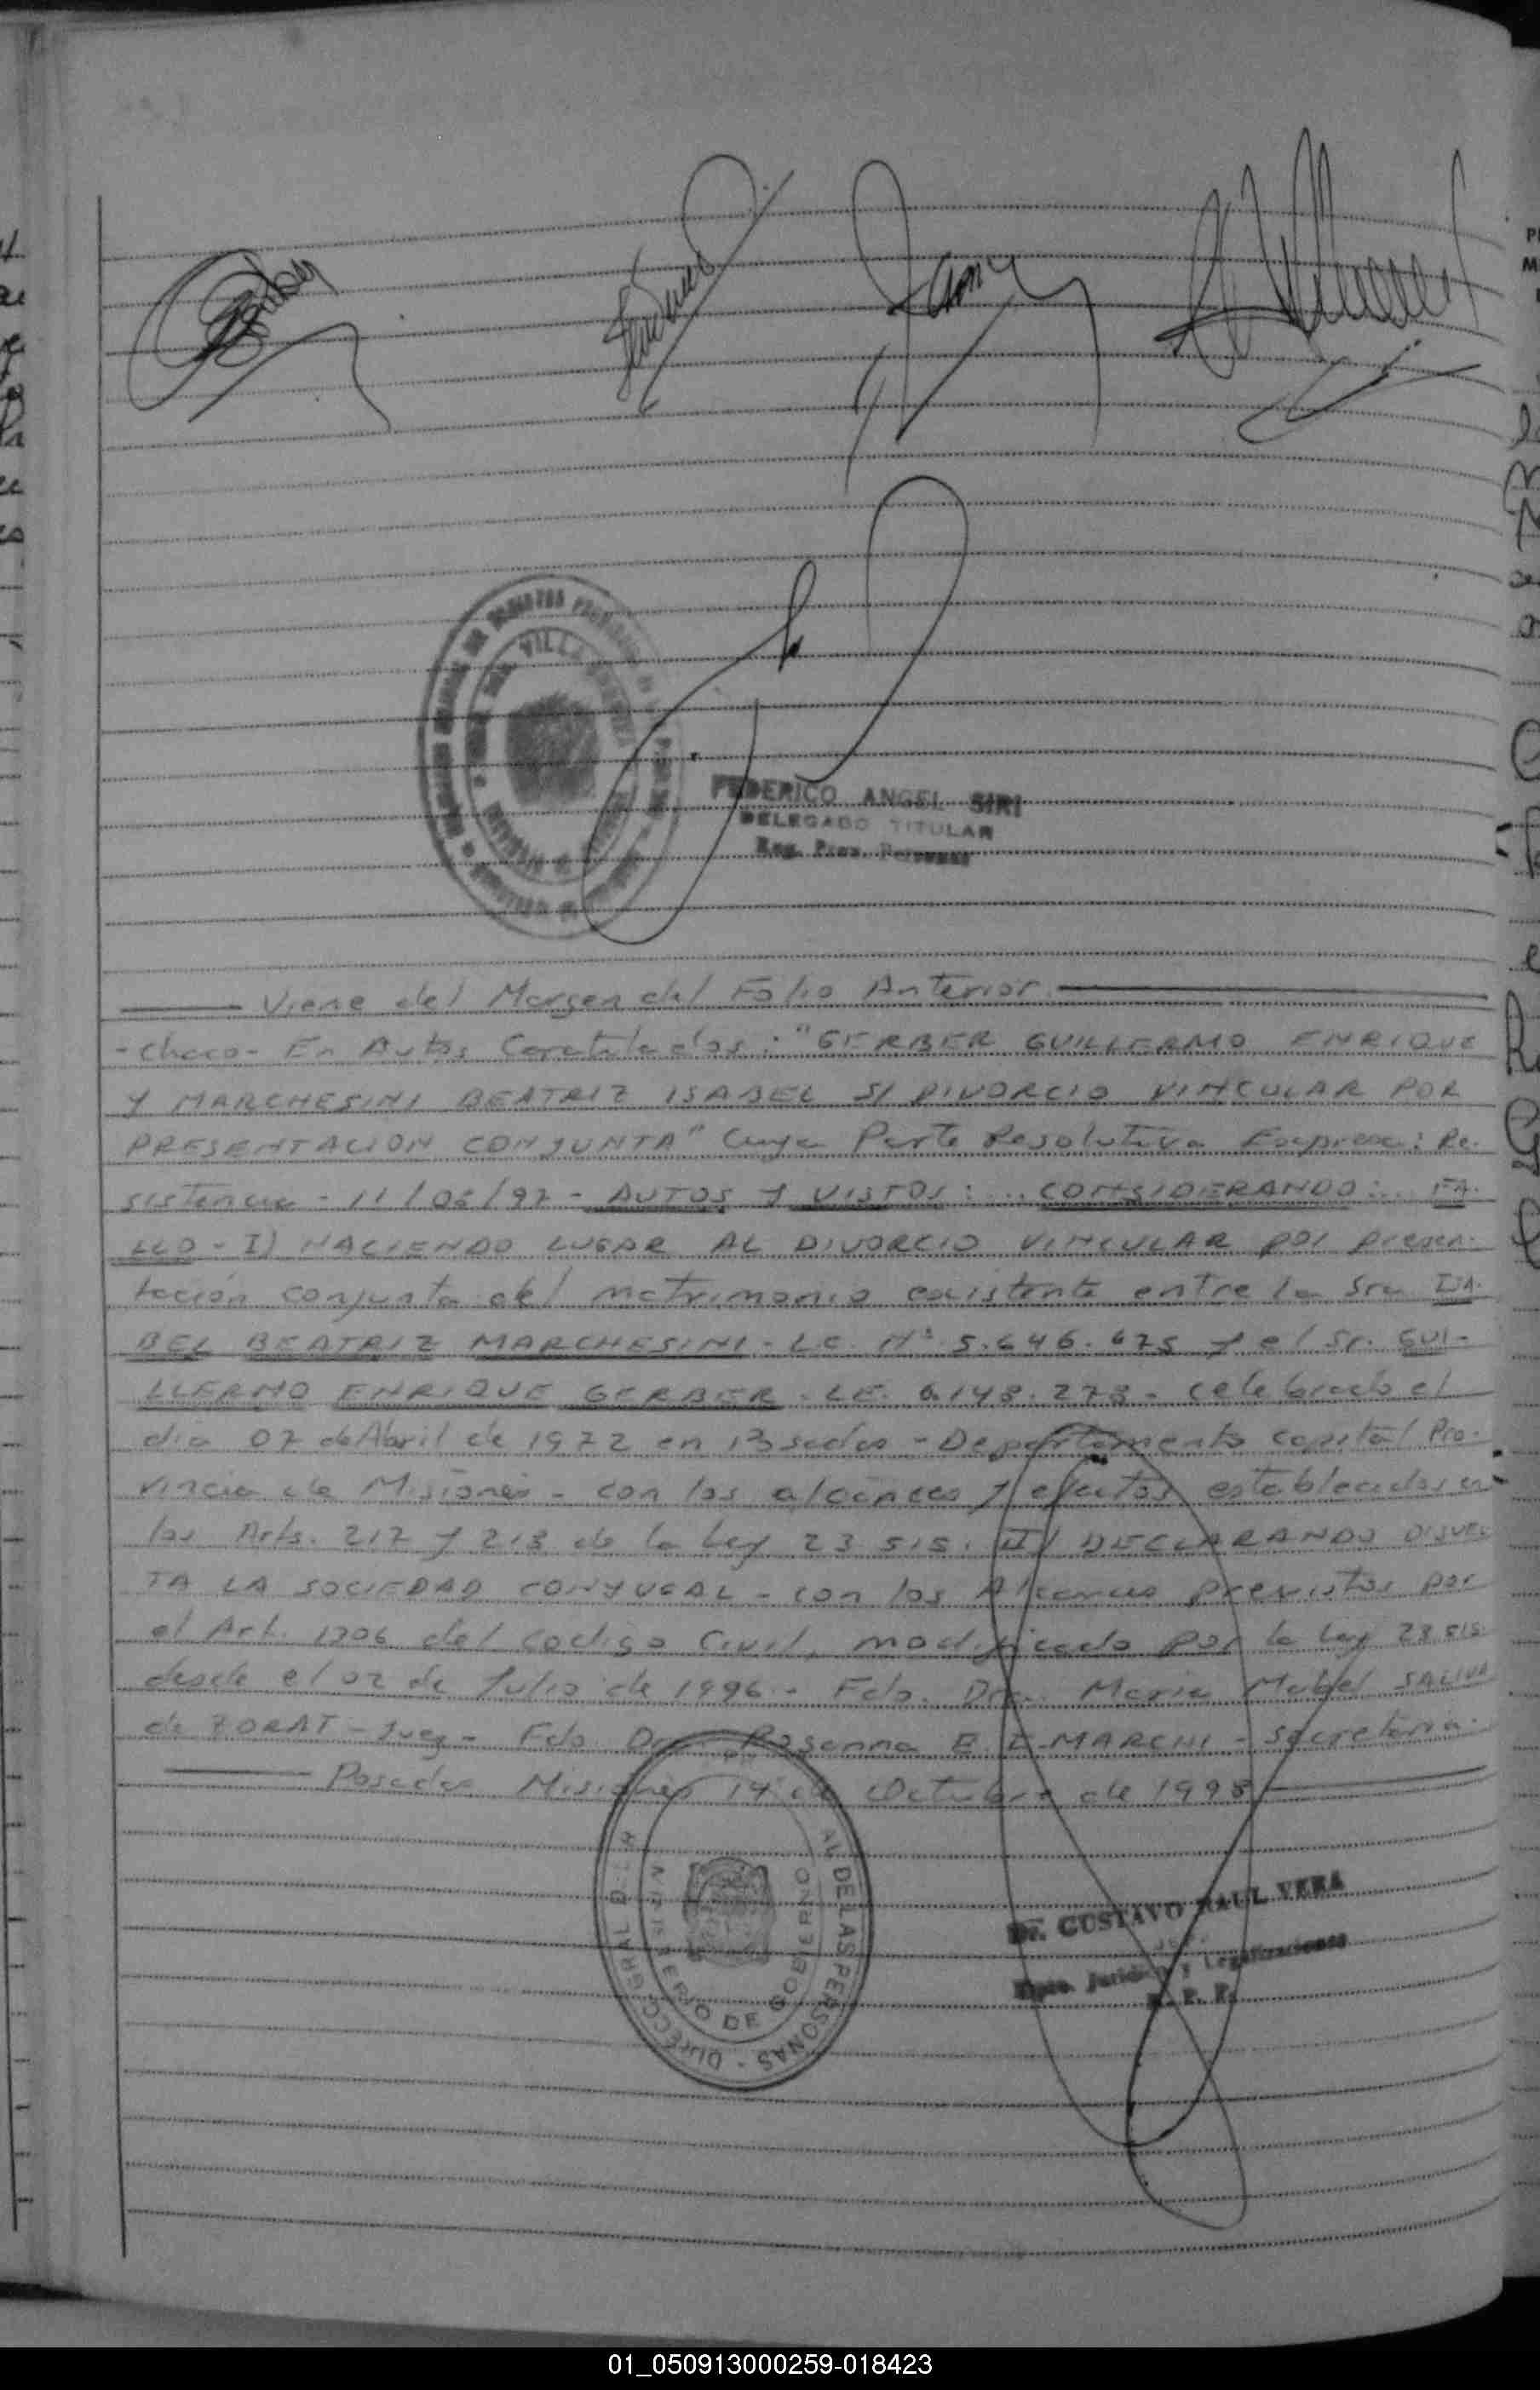 FEDERICO ANGEL SIRI
DELEGADO TITULAR
Reg. Prov. Personas
Viene del Margen del Folio Anterior
-Chaco- En Autos Caratulados: "GERBER GUILLERMO ENRIQUE
Y MARCHESINI BEATRIZ ISABEL S/ DIVORCIO VINCULAR POR
PRESENTACION CONJUNTA" Cuya Parte Resolutiva Expresa: Re-
sistencia - 11/06/97 - AUTOS Y VISTOS: .. CONSIDERANDO: .. FA-
LLO - I) HACIENDO LUGAR AL DIVORCIO VINCULAR por presen-
tación conjunta del matrimonio existente entre la Sra ISA-
BEL BEATRIZ MARCHESINI - L.C. Nº 5.646.675 y el Sr. GUI-
LLERMO ENRIQUE GERBER - L.E. 6.148.278 - celebrado el
dia 07 de Abril de 1972 en Posadas - Departamento capital Pro-
vincia de Misiones - con los alcances y efectos establecidos en
los Arts. 217 y 218 de la Ley 23.515. II) DECLARANDO DISUEL
TA LA SOCIEDAD CONYUGAL - con los Alcances previstos por
el Art. 1306 del Codigo Civil, modificado por la Ley 23.515
desde el 02 de Julio de 1996 - Fdo. Dra. Maria Mabel SALIVA
de ZORAT - Juez - Fdo Dra. Rosanna E. I. MARCHI - Secretaria.
Posadas Misiones 14 de Octubre de 1998
DE LAS PERSONAS - DIRECC. GRAL
MINISTERIO DE GOBIERNO
Dr. GUSTAVO RAUL VERA
Jefe
Dpto. Jurídico y Legalizaciones
R. P. P.
01_050913000259-018423